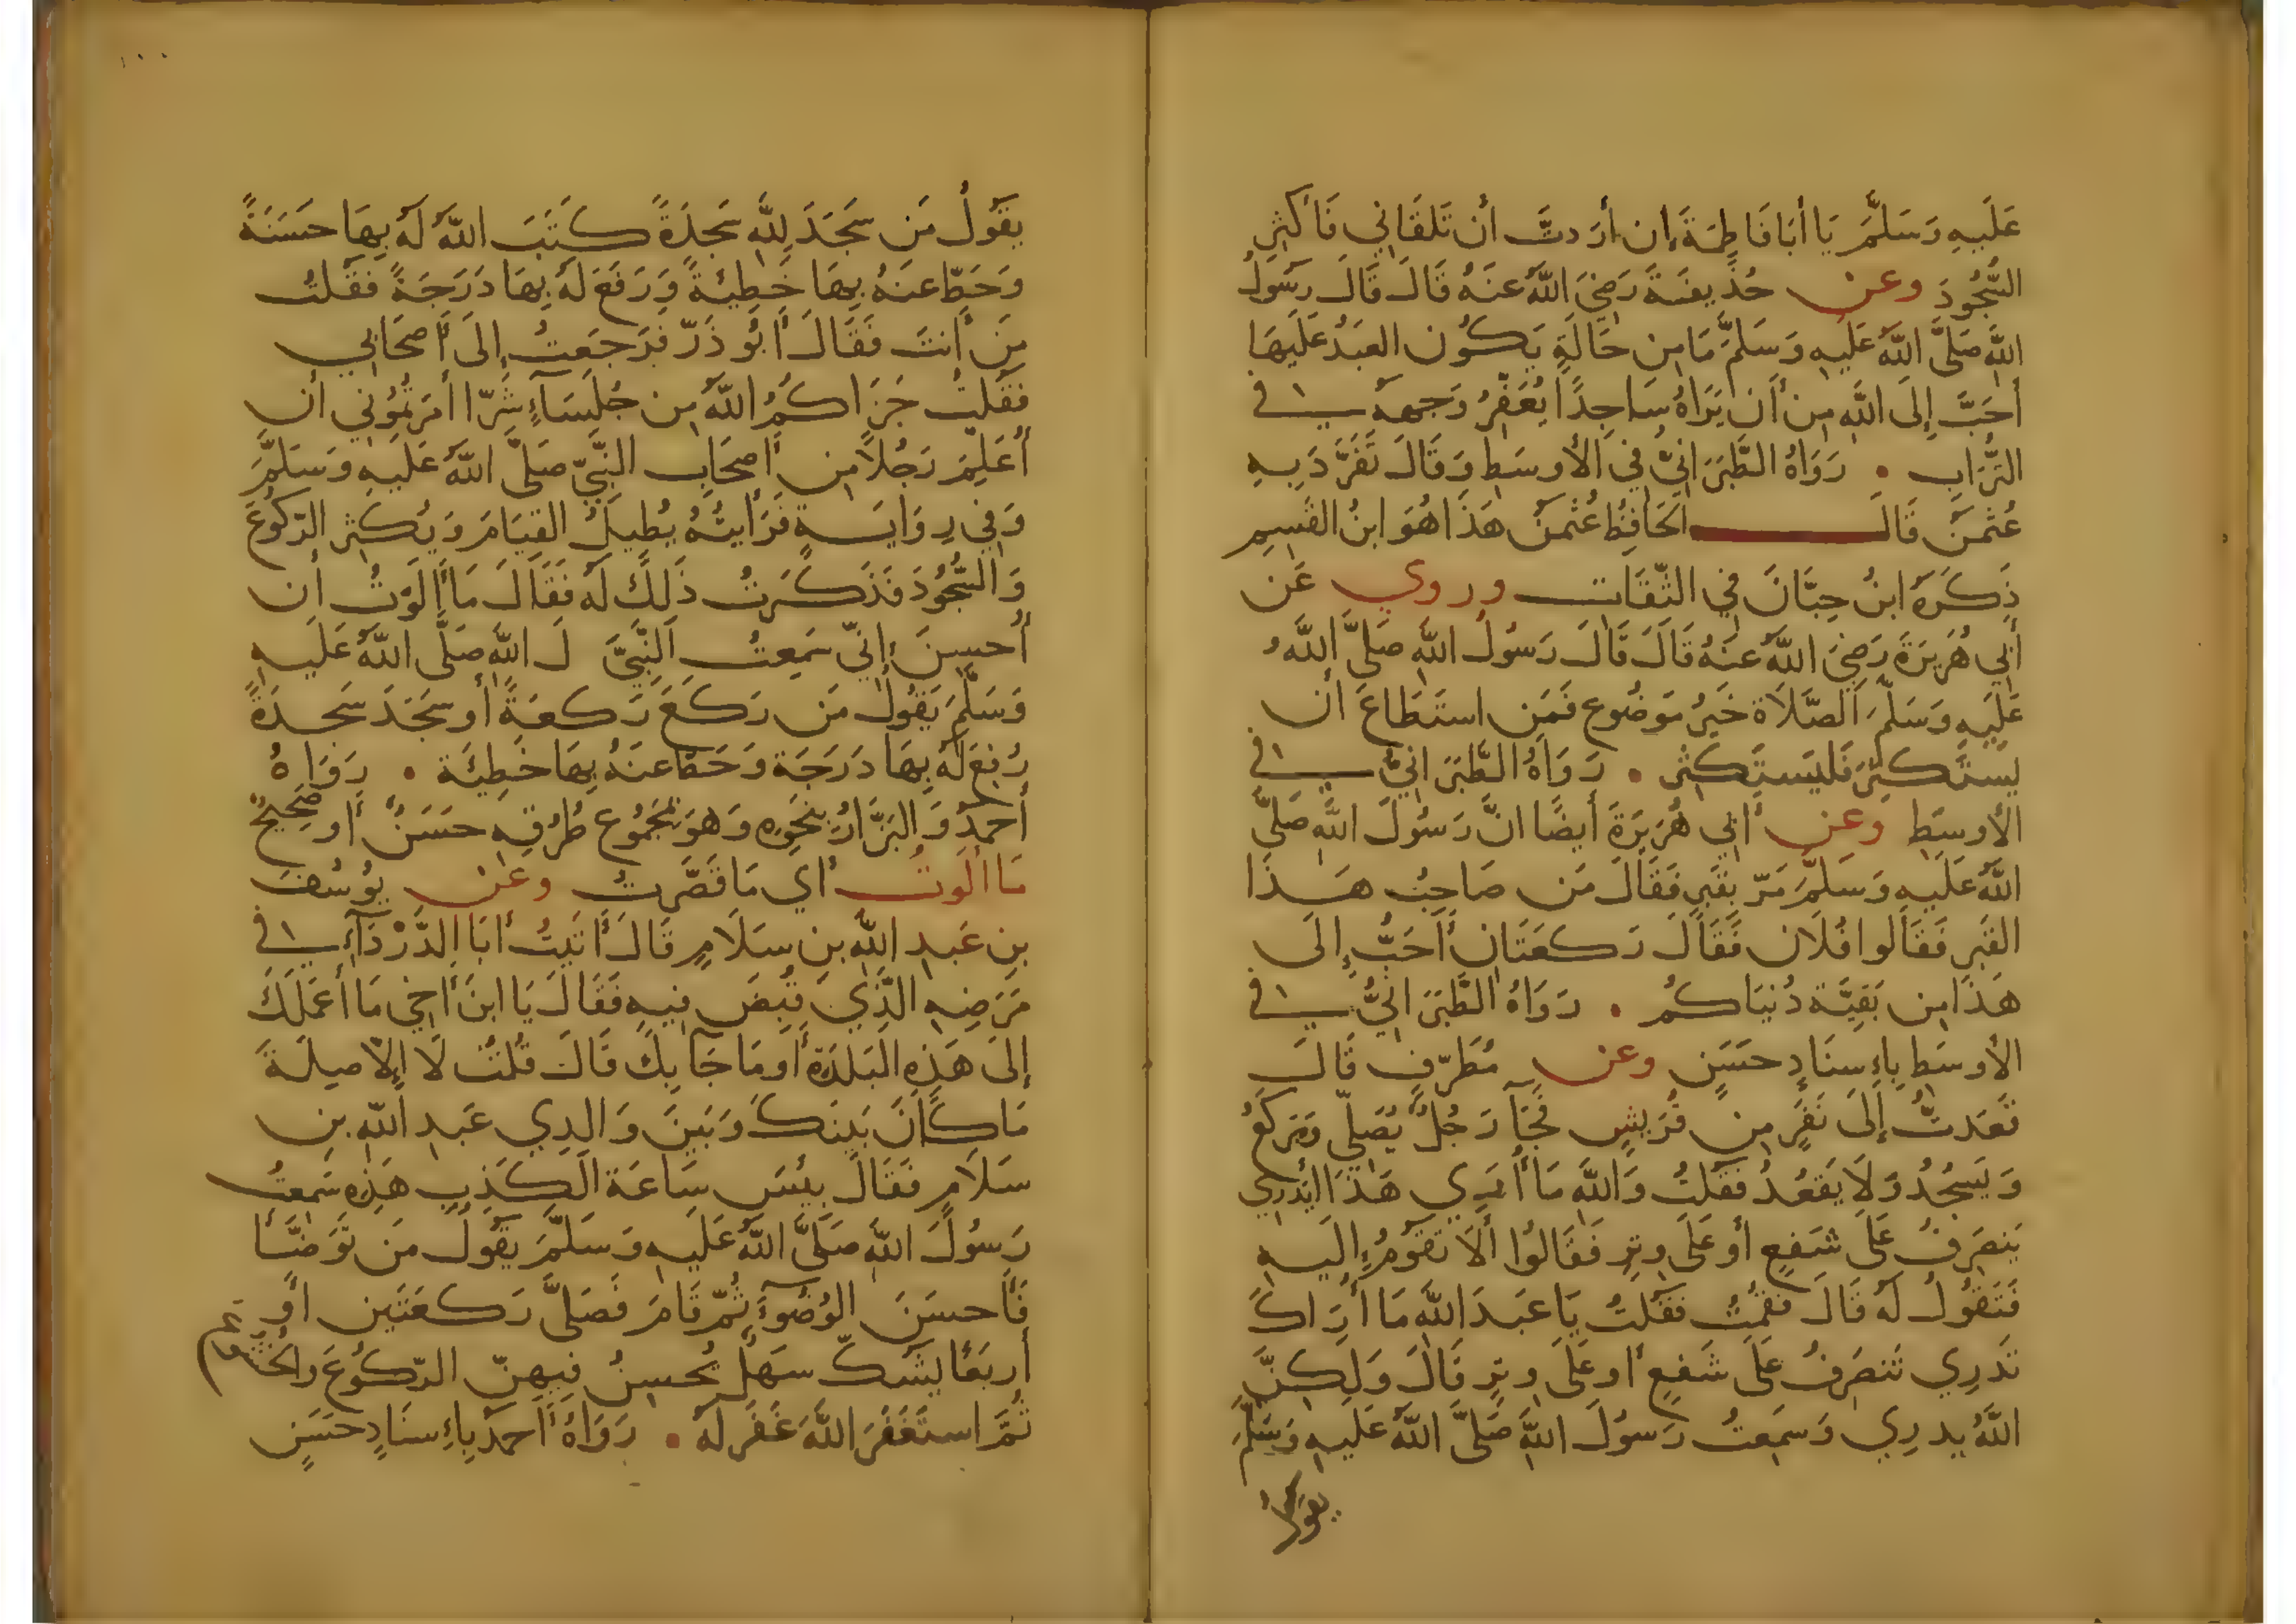 عَلَيهِ وَسَلَّمَ يَا أبَا فَاطِمَةَ إن أرَدتَّ أن تَلقَانِي فَأكثِرِ
السُّجُودَ وعن حُذَيفَةَ رَضِيَ اللَّهُ عَنهُ قَالَ قَالَ رَسُولُ
اللَّهِ صَلَّى اللَّهُ عَلَيهِ وَسَلَّمَ مَا مِن حَالَةٍ يَكُونُ العَبدُ عَلَيهَا
أحَبَّ إلَى اللَّهِ مِن أن يَرَاهُ سَاجِدًا يُعَفِّرُ وَجهَهُ فِي
التُّرَابِ . رَوَاهُ الطَّبَرَانِيُّ فِي الأوسَطِ وَقَالَ تَفَرَّدَ بِهِ
عُثمَنُ قَالَ الحَافِظُ عُثمَنُ هَذَا هُوَ ابنُ القَسِمِ
ذَكَرَهُ ابنُ حِبَّانَ فِي الثِّقَاتِ وروي عَن
أبِي هُرَيرَةَ رَضِيَ اللَّهُ عَنهُ قَالَ قَالَ رَسُولُ اللَّهِ صَلَّى اللَّهُ
عَلَيهِ وَسَلَّمَ الصَّلَاةُ خَيرُ مَوضُوعٍ فَمَنِ استَطَاعَ أن
يَستَكثِرَ فَليَستَكثِر . رَوَاهُ الطَّبَرَانِيُّ فِي
الأوسَطِ وعن أبِي هُرَيرَةَ أيضًا انَّ رَسُولَ اللَّهِ صَلَّى
اللَّهُ عَلَيهِ وَسَلَّمَ مَرَّ بِقَبرٍ فَقَالَ مَن صَاحِبُ هَذَا
القَبرِ فَقَالُوا فُلَان فَقَالَ رَكعَتَانِ أحَبُّ إلَى
هَذَا مِن بَقِيَّةِ دُنيَاكُم . رَوَاهُ الطَّبَرَانِيُّ فِي
الأوسَطِ بِإسنَادٍ حَسَنٍ وعن مُطَرِّفٍ قَالَ
قَعَدتُّ إلَى نَفَرٍ مِن قُرَيشٍ فَجَآ رَجُلٌ يُصَلِّي وَيَركَعُ
وَيَسجُدُ وَلَا يَقعُدُ فَقُلتُ وَاللَّهِ مَا أرَى هَذَا يَدرِي
يَنصَرِفُ عَلَى شَفعٍ أو عَلَى وِترٍ فَقَالُوا ألَا تَقُومُ إلَيهِ
فَتَقُولُ لَهُ قَالَ فَقُمتُ فَقُلتُ يَا عَبدَ اللَّهِ مَا أرَاكَ
تَدرِي تَنصَرِفُ عَلَى شَفعٍ أو عَلَى وِترٍ قَالَ وَلَكِنَّ
اللَّهَ يَدرِي وَسَمِعتُ رَسُولَ اللَّهِ صَلَّى اللَّهُ عَلَيهِ وَسَلَّمَ
يقول
يَقُولُ مَن سَجَدَ لِلَّهِ سَجدَةً كَتَبَ اللَّهُ لَهُ بِهَا حَسَنَةً
وَحَطَّ عَنهُ بِهَا خَطِيئَةً وَرَفَعَ لَهُ بِهَا دَرَجَةً فَقُلتُ
مَن أنتَ فَقَالَ أبُو ذَرٍّ فَرَجَعتُ إلَى أصحَابِي
فَقُلتُ جَزَاكُمُ اللَّهُ مِن جُلَسَاءٍ شَرًّا أمَرتُمُونِي أن
أعَلِّمَ رَجُلًا مِن أصحَابِ النَّبِيِّ صَلَّى اللَّهُ عَلَيهِ وَسَلَّمَ
وَفِي رِوَايَةٍ فَرَأيتُهُ يُطِيلُ القِيَامَ وَيُكثِرُ الرُّكُوعَ
وَالسُّجُودَ فَذَكَرتُ ذَلِكَ لَهُ فَقَالَ مَا ألَوتُ أن
أحسِنَ إنِّي سَمِعتُ النَّبِيَّ ل اللَّهِ صَلَّى اللَّهُ عَلَيهِ
وَسَلَّمَ يَقُولُ مَن رَكَعَ رَكعَةً أو سَجَدَ سَجدَةً
رُفِعَ لَهُ بِهَا دَرَجَة وَحَطَّ عَنهُ بِهَا خَطِيئَة . رَوَاهُ
أحمَدُ وَالبَزَّارُ بِنَحوِهِ وَهوَ بِمَجمُوعِ طُرُقِهِ حَسَنٌ أو صَحِيحٌ
مَا ألَوتُ أي مَا قَصَّرتُ وعن يُوسُفَ
بنِ عَبدِ اللَّهِ بنِ سَلَامٍ قَالَ أتَيتُ أبَا الدَّردَآءِ فِي
مَرَضِهِ الَّذِي قُبِضَ فِيهِ فَقَالَ يَا ابنَ أخِي مَا أعمَلَكَ
إلَى هَذِهِ البَلدَةِ أو مَا جَآ بِكَ قَالَ قُلتُ لَا إلَّا صِلَةَ
مَا كَانَ بَينَكَ وَبَينَ وَالِدِي عَبدِ اللَّهِ بنِ
سَلَامٍ فَقَالَ بِئسَ سَاعَةُ الكَذِبِ هَذِهِ سَمِعتُ
رَسُولَ اللَّهِ صَلَّى اللَّهُ عَلَيهِ وَسَلَّمَ يَقُولُ مَن تَوَضَّأ
فَأحسَنَ الوُضُوءَ ثُمَّ قَامَ فَصَلَّى رَكعَتَينِ أو
أربَعًا يَشُكُّ سَهلٌ يُحسِنُ فِيهِنَّ الرُّكُوعَ والخُشُوعَ
ثُمَّ استَغفَرَ اللَّهَ غَفَرَ لَهُ . رَوَاهُ أحمَدُ بِإسنَادٍ حَسَنٍ